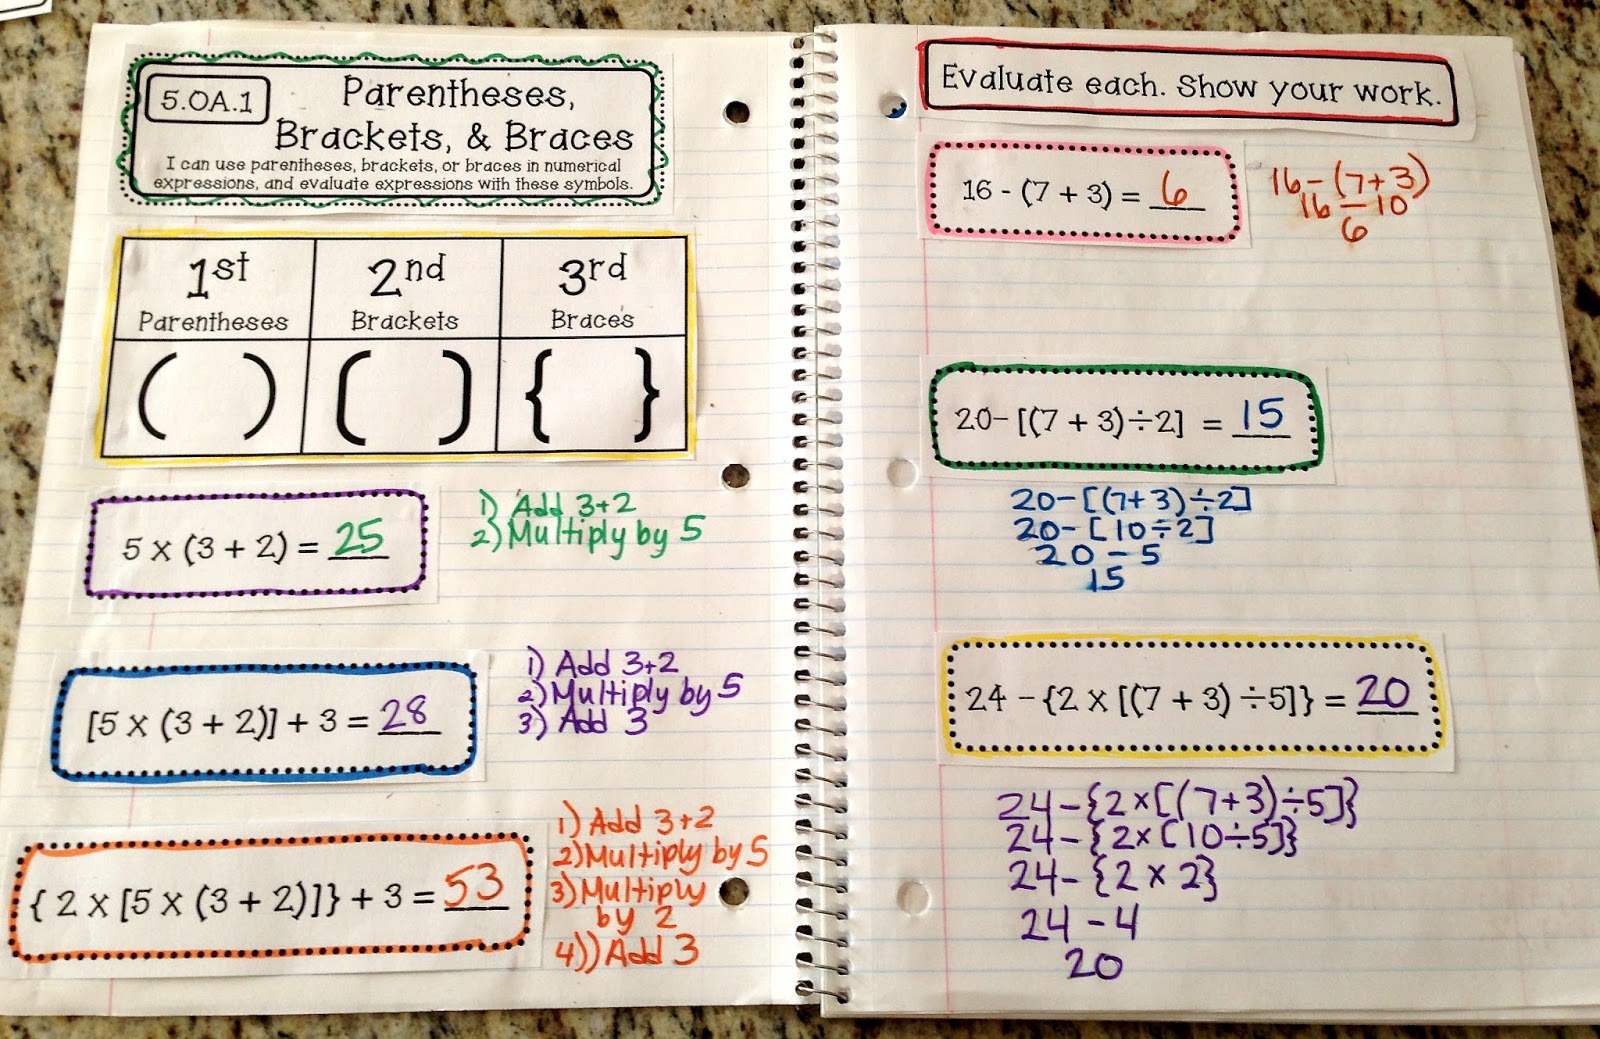 5.OA.1
Parentheses,
Brackets, & Braces
I can use parentheses, brackets, or braces in numerical
expressions, and evaluate expressions with these symbols.
1st
Parentheses
2nd
Brackets
3rd
Braces
( )
[ ]
{ }
5 x (3 + 2) = 25
1) Add 3+2
2) Multiply by 5
[5 x (3 + 2)] + 3 = 28
1) Add 3+2
2) Multiply by 5
3) Add 3
{ 2 x [5 x (3 + 2)]} + 3 = 53
1) Add 3+2
2) Multiply by 5
3) Multiply
by 2
4)) Add 3
Evaluate each. Show your work.
16 - (7 + 3) = 6
16-(7+3)
16-10
6
20- [(7 + 3) ÷ 2] = 15
20-[(7+3)÷2]
20-[10÷2]
20-5
15
24 - {2 x [(7 + 3) ÷5]} = 20
24-{2x[(7+3)÷5]}
24-{2x[10÷5]}
24-{2 x 2}
24-4
20